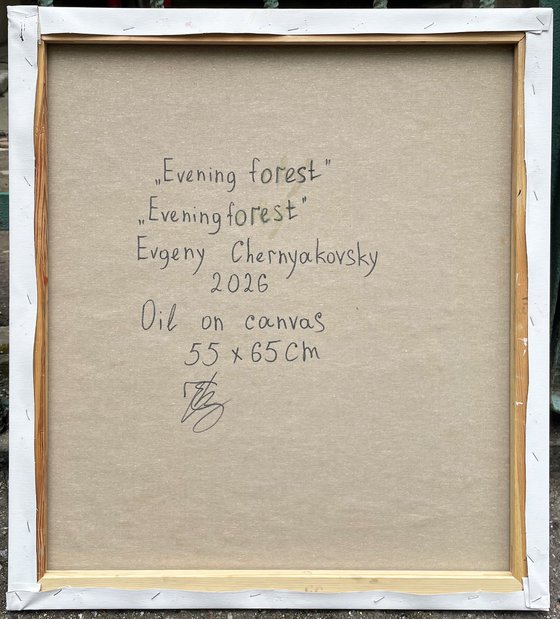 „Evening forest"
„Evening forest"
Evgeny Chernyakovsky
2026
Oil on canvas
55 x 65 cm